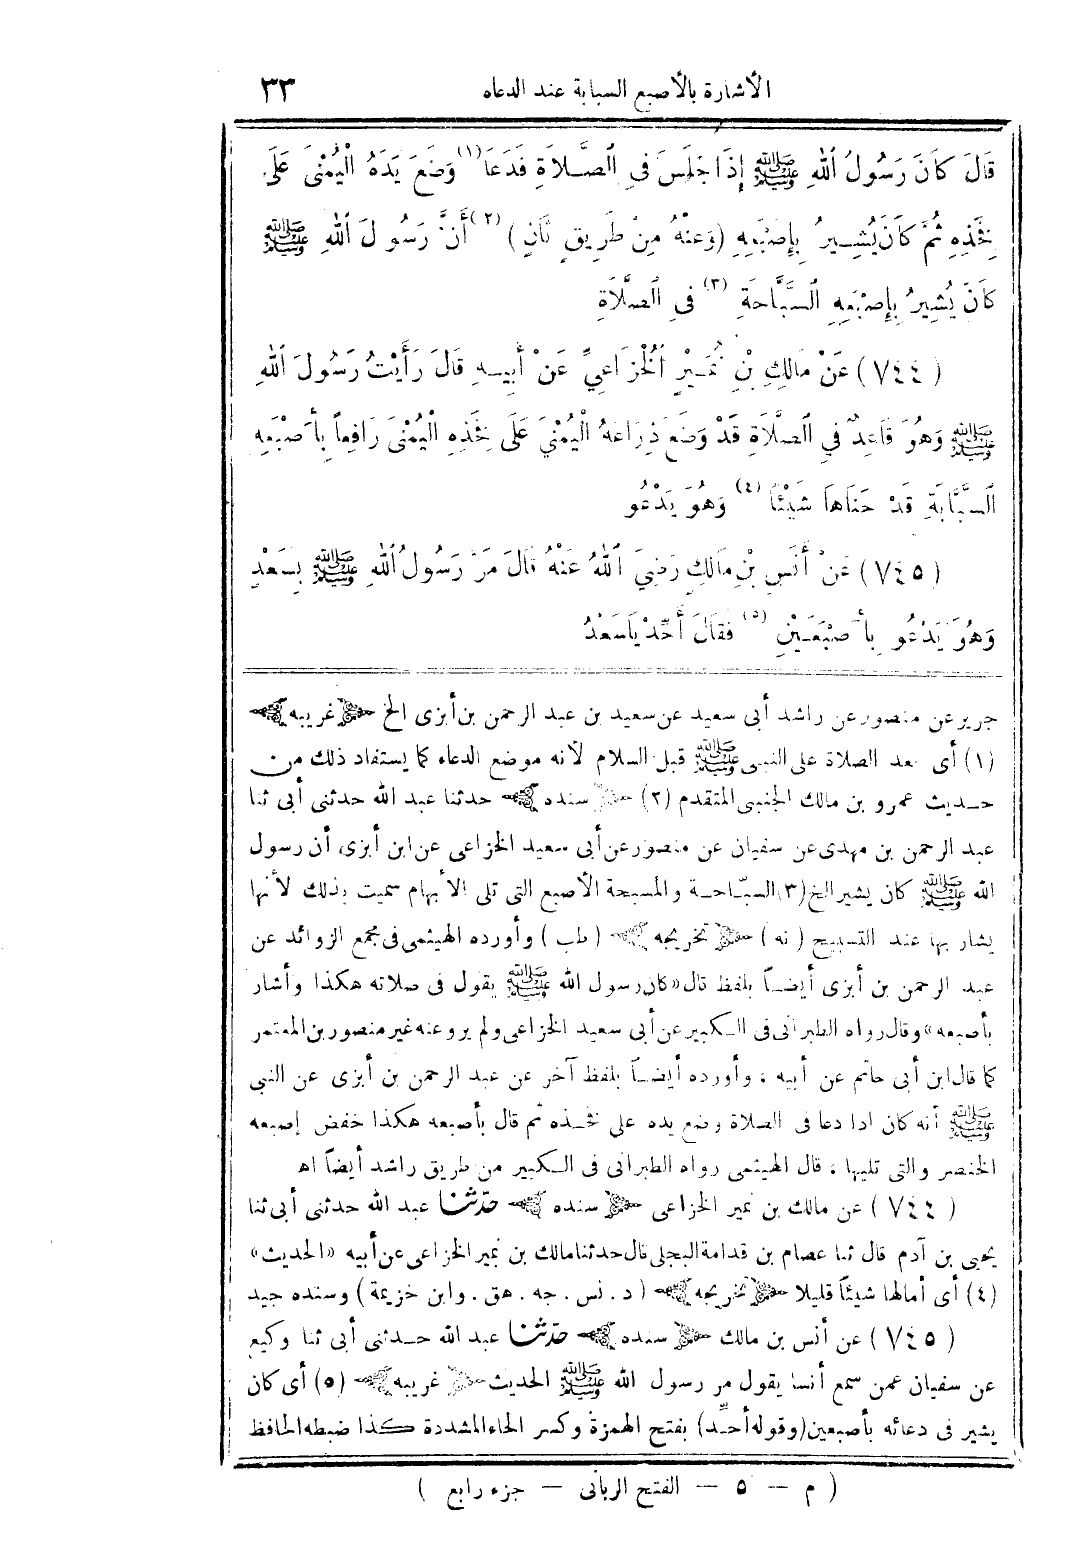 الأشارة بالأصبع السبابة عند الدعاء ٣٣
قَالَ كَانَ رَسُولُ اللهِ ﷺ إِذَا جَلَسَ فِى الصَّلَاةِ فَدَعَا (١) وَضَعَ يَدَهُ الْيُمْنَى عَلَى
فَخِذِهِ ثُمَّ كَانَ يُشِيرُ بِإِصْبَعِهِ (وَعَنْهُ مِنْ طَرِيقٍ ثَانٍ) (٢) أَنَّ رَسُولَ اللهِ ﷺ
كَانَ يُشِيرُ بِإِصْبَعِهِ السَّبَّاحَةِ (٣) فِى الصَّلَاةِ
(٧٤٤) عَنْ مَالِكِ بْنِ نُمَيْرٍ الْخُزَاعِيِّ عَنْ أَبِيهِ قَالَ رَأَيْتُ رَسُولَ اللهِ
ﷺ وَهُوَ قَاعِدٌ فِي الصَّلَاةِ قَدْ وَضَعَ ذِرَاعَهُ الْيُمْنَيَ عَلَى فَخِذِهِ الْيُمْنَى رَافِعاً بِأَصْبَعِهِ
السَّبَّابَةِ قَدْ حَنَاهَا شَيْئًا (٤) وَهُوَ يَدْعُو
(٧٤٥) عَنْ أَنَسِ بْنِ مَالِكٍ رَضِيَ اللهُ عَنْهُ قَالَ مَرَّ رَسُولُ اللهِ ﷺ بِسَعْدٍ
وَهُوَ يَدْعُو بِأَصْبَعَيْنِ (٥) فَقَالَ أَحِّدْ يَا سَعْدُ
جرير عن منصور عن راشد أبى سعيد عن سعيد بن عبد الرحمن بن أبزى الخ ﴿غريبه﴾
(١) أى بعد الصلاة على النبى ﷺ قبل السلام لأنه موضع الدعاء كما يستفاد ذلك من
حديث عمرو بن مالك الجنبى المتقدم (٢) ﴿سنده﴾ حدثنا عبد الله حدثنى أبى ثنا
عبد الرحمن بن مهدى عن سفيان عن منصور عن أبى سعيد الخزاعى عن ابن أبزى أن رسول
الله ﷺ كان يشير الخ (٣) السبّاحة والمسبحة الأصبع التى تلى الأبهام سميت بذلك لأنها
يشار بها عند التسبيح (نه) ﴿تخريجه﴾ (طب) وأورده الهيثمى فى مجمع الزوائد عن
عبد الرحمن بن أبزى أيضاً بلفظ قال «كان رسول الله ﷺ يقول فى صلاته هكذا وأشار
بأصبعه» وقال رواه الطبرانى فى الكبير عن أبى سعيد الخزاعى ولم يرو عنه غير منصور بن المعتمر
كما قال ابن أبى حاتم عن أبيه ، وأورده أيضاً بلفظ آخر عن عبد الرحمن بن أبزى عن النبي
ﷺ أنه كان اذا دعا فى الصلاة وضع يده على فخذه ثم قال بأصبعه هكذا خفض إصبعه
الخنصر والتى تليها ، قال الهيثمى رواه الطبرانى فى الكبير من طريق راشد أيضاً اهـ
(٧٤٤) عن مالك بن نمير الخزاعى ﴿سنده﴾ حدّثنا عبد الله حدثنى أبى ثنا
يحيى بن آدم قال ثنا عصام بن قدامة البجلى قال حدثنا مالك بن نمير الخزاعى عن أبيه «الحديث»
(٤) أى أمالها شيئاً قليلا ﴿تخريجه﴾ (د . نس . جه . هق . وابن خزيمة) وسنده جيد
(٧٤٥) عن أنس بن مالك ﴿سنده﴾ حدّثنا عبد الله حدثنى أبى ثنا وكيع
عن سفيان عمن سمع أنسا يقول مر رسول الله ﷺ الحديث ﴿غريبه﴾ (٥) أى كان
يشير فى دعائه بأصبعين (وقوله أحِّد) بفتح الهمزة وكسر الحاء المشددة كذا ضبطه الحافظ
(م — ٥ — الفتح الربانى — جزء رابع)